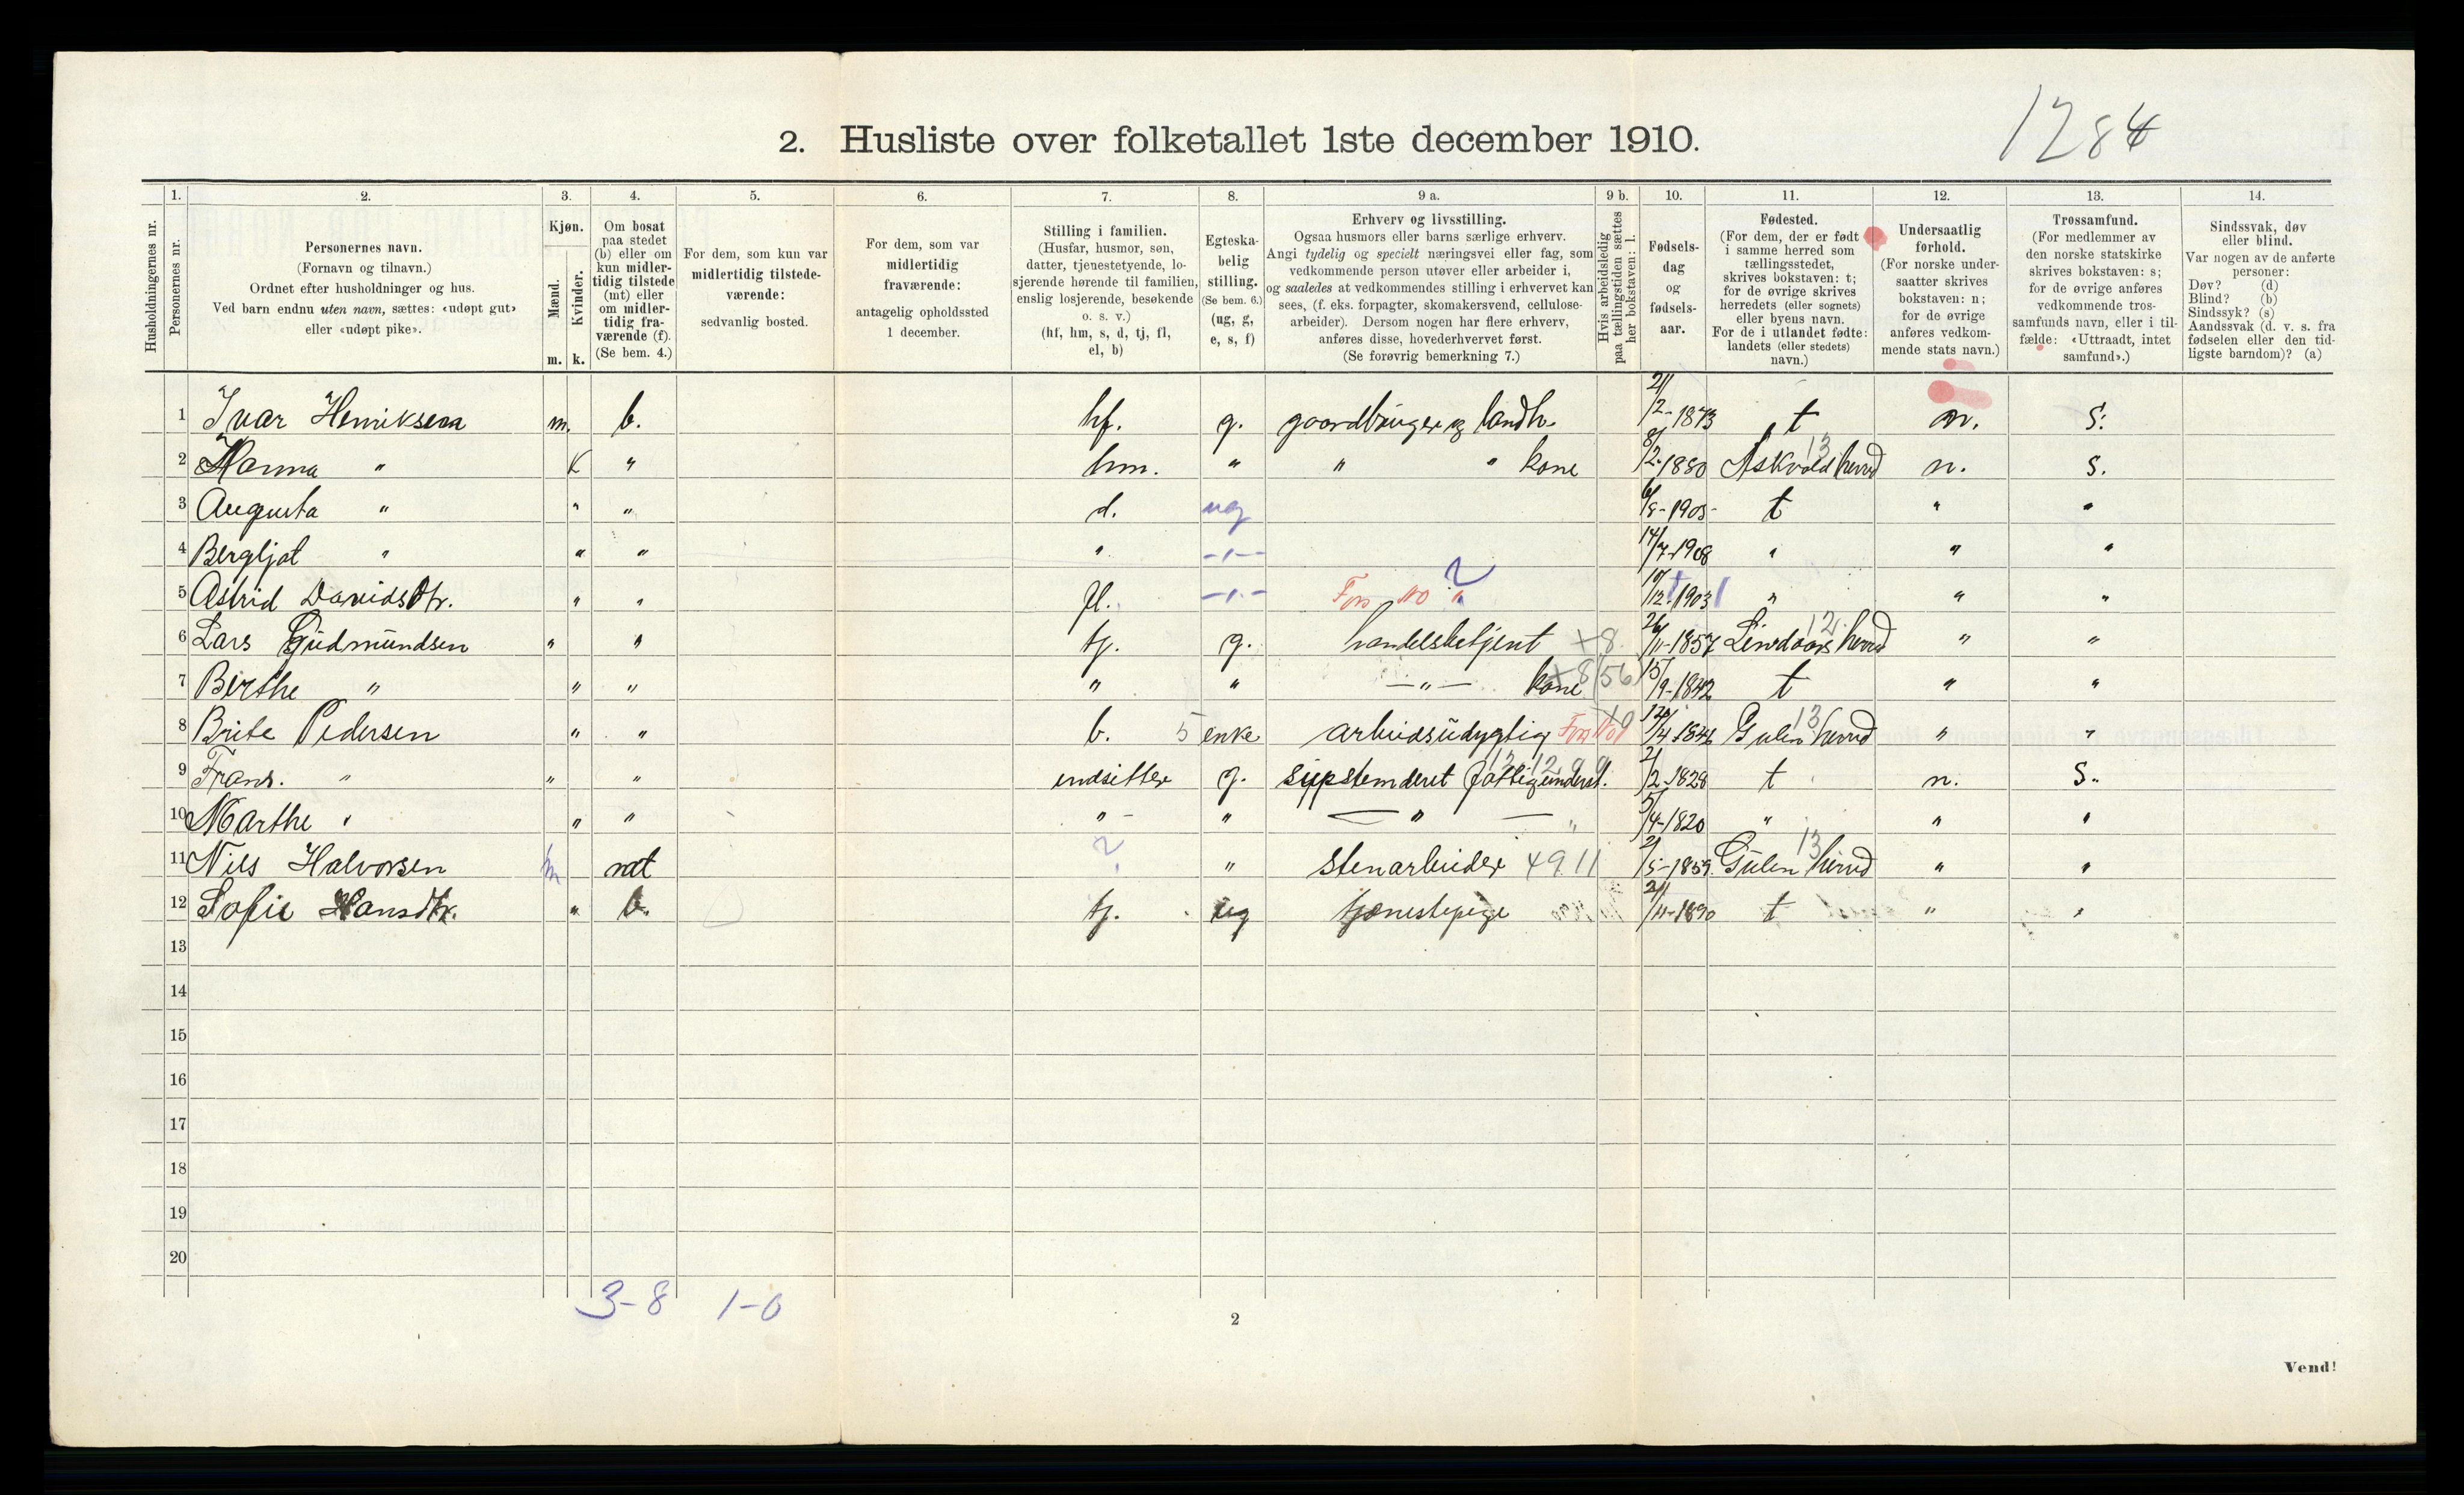 1284
2. Husliste over folketallet 1ste december 1910.
Husholdningernes nr.
1.
Personernes nr.
2.
Personernes navn.
(Fornavn og tilnavn.)
Ordnet efter husholdninger og hus.
Ved barn endnu uten navn, sættes: «udøpt gut»
eller «udøpt pike».
3.
Kjøn.
Mænd.
Kvinder.
m. k.
4.
Om bosat
paa stedet
(b) eller om
kun midler-
tidig tilstede
(mt) eller
om midler-
tidig fra-
værende (f).
(Se bem. 4.)
5.
For dem, som kun var
midlertidig tilstede-
værende:
sedvanlig bosted.
6.
For dem, som var
midlertidig
fraværende:
antagelig opholdssted
1 december.
7.
Stilling i familien.
(Husfar, husmor, søn,
datter, tjenestetyende, lo-
sjerende hørende til familien,
enslig losjerende, besøkende
o. s. v.)
(hf, hm, s, d, tj, fl,
el, b)
8.
Egteska-
belig
stilling.
(Se bem. 6.)
(ug, g,
e, s, f)
9 a.
Erhverv og livsstilling.
Ogsaa husmors eller barns særlige erhverv.
Angi tydelig og specielt næringsvei eller fag, som
vedkommende person utøver eller arbeider i,
og saaledes at vedkommendes stilling i erhvervet kan
sees, (f. eks. forpagter, skomakersvend, cellulose-
arbeider). Dersom nogen har flere erhverv,
anføres disse, hovederhvervet først.
(Se forøvrig bemerkning 7.)
9 b.
Hvis arbeidsledig
paa tællingstiden sættes
her bokstaven: l.
10.
Fødsels-
dag
og
fødsels-
aar.
11.
Fødested.
(For dem, der er født
i samme herred som
tællingsstedet,
skrives bokstaven: t;
for de øvrige skrives
herredets (eller sognets)
eller byens navn.
For de i utlandet fødte:
landets (eller stedets)
navn.)
12.
Undersaatlig
forhold.
(For norske under-
saatter skrives
bokstaven: n;
for de øvrige
anføres vedkom-
mende stats navn.)
13.
Trossamfund.
(For medlemmer av
den norske statskirke
skrives bokstaven: s;
for de øvrige anføres
vedkommende tros-
samfunds navn, eller i til-
fælde: «Uttraadt, intet
samfund».)
14.
Sindssvak, døv
eller blind.
Var nogen av de anførte
personer:
Døv? (d)
Blind? (b)
Sindssyk? (s)
Aandssvak (d. v. s. fra
fødselen eller den tid-
ligste barndom)? (a)
1 Ivar Henriksen m. b. hf. g. gaardbruger og landh. 21/2-1873 t n. S.
2 Hanna " k " hm. " " " kone 8/2-1880 Askvold herred 13 n. S.
3 Augusta " " " d. ug 6/8-1905 t " "
4 Bergljot " " " " -"- 14/7-1908 " " "
5 Astrid Davidsdtr. " " fl. -"- 10/12 1903 " " "
6 Lars Gudmundsen " " tj. g. handelsbetjent +8 26/11-1857 Lindaas herred 12 " "
7 Birthe " " " " " -"- kone +8 (56) 15/9-1842 t " "
8 Brite Pedersen " " b. 5 enke arbeidsudygtig /4 1846 Gulen herred 13 " "
9 Frans. " " " indsitter g. fattigunderst. 2/2-1828 t n. S.
10 Marthe " " " " " -"- 5/4-1820 " " "
11 Nils Halvorsen m mt ? " stenarbeider 4911 2/5-1859 Gulen herred 13 " "
12 Sofie Hansdtr. " b. tj. ug tjenestepige 21/11-1890 t " "
13
14
15
16
17
18
19
20
3-8 1-0
2
Vend!